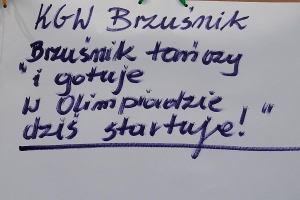 KGW Brzuśnik
Brzuśnik tańczy
"i gotuje
w Olimpiadzie
dziś startuje!"